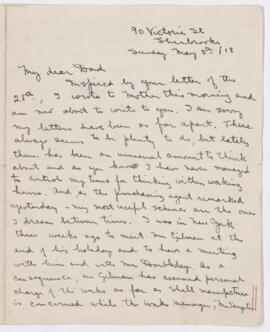 90 Victoria St
Sherbrooke
Sunday May 5th/18
My dear Dad
Inspired by your letter of the
28th, I wrote to Mother this morning and
am now about to write to you. I am sorry
my letters have been so far apart. There
always seems to be plenty to do, but lately
there has been an unusual amount to think
about and as you know I have never managed
to control my times for thinking within working
hours. And, as the purchasing agent remarked
yesterday - my most useful schemes are the ones
I dream between times. I was in New York
three weeks ago to meet Mr Gilman at the
end of his holiday and to have a meeting
with him and with Mr Doubleday. As a
consequence, Mr Gilman has assumed personal
charge of the works as far as shell manufacture
is concerned while the works manager, Mr